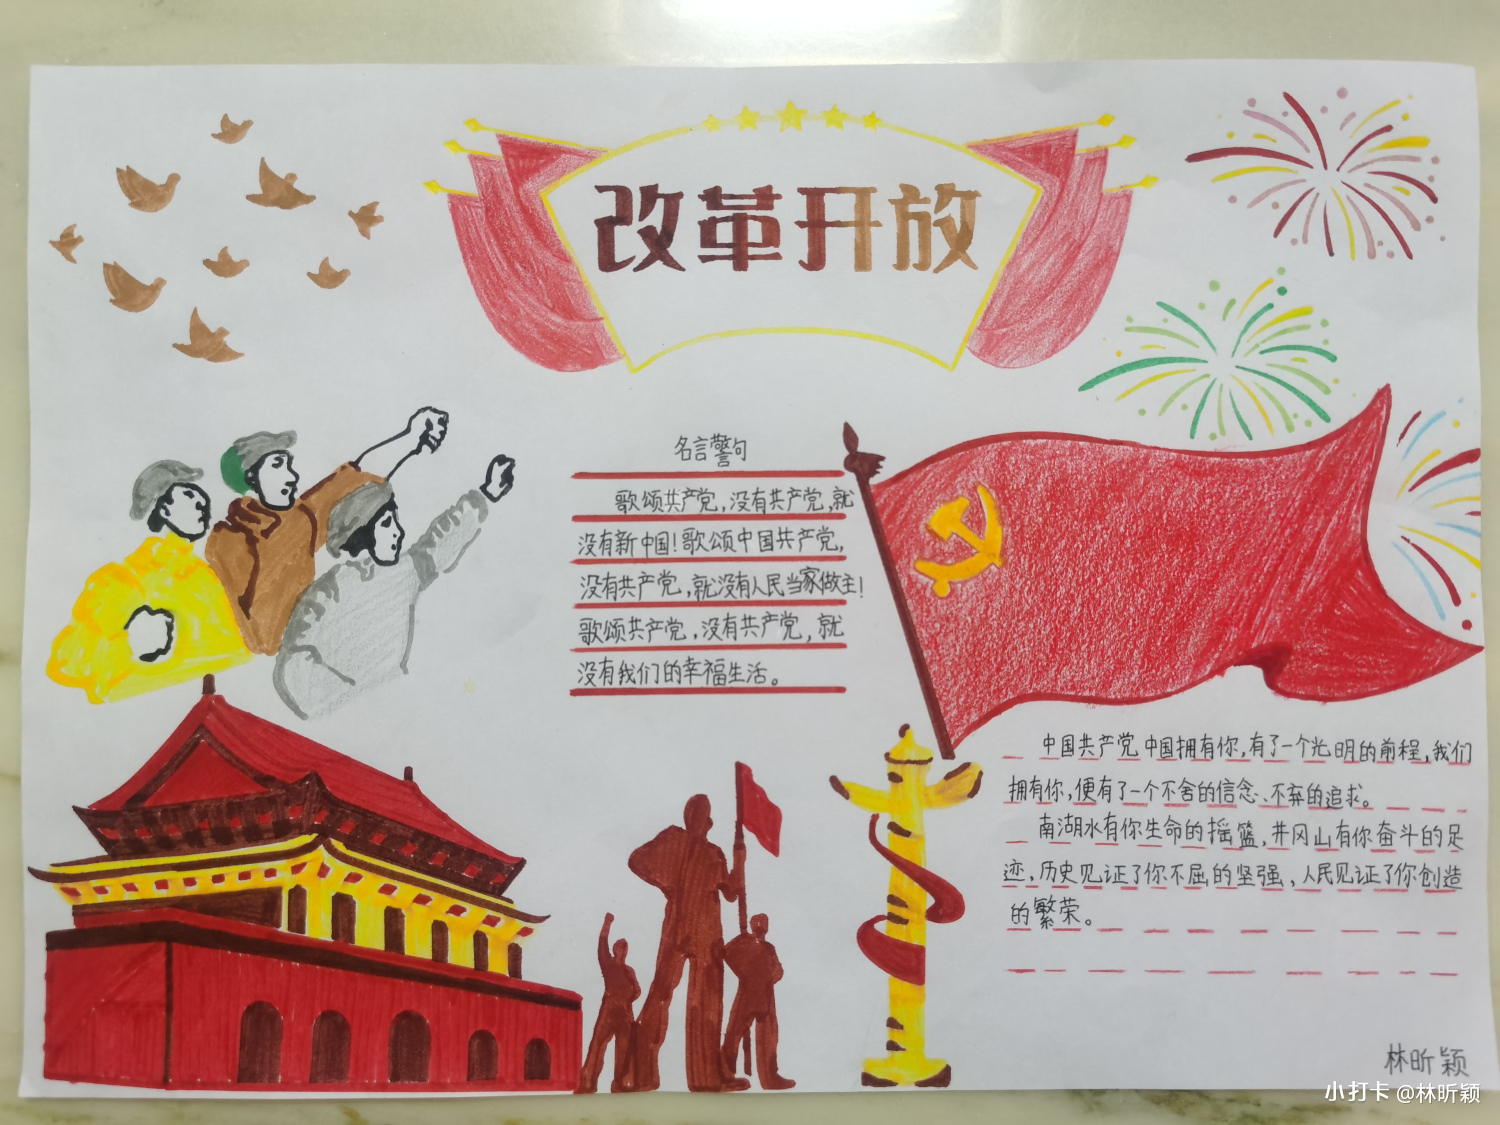 改革开放
名言警句
歌颂共产党,没有共产党,就
没有新中国!歌颂中国共产党,
没有共产党,就没有人民当家做主!
歌颂共产党,没有共产党,就
没有我们的幸福生活。
中国共产党中国拥有你,有了一个光明的前程,我们
拥有你,便有了一个不舍的信念、不弃的追求。
南湖水有你生命的摇篮,井冈山有你奋斗的足
迹,历史见证了你不屈的坚强、人民见证了你创造
的繁荣。
林昕颖
小打卡 @林昕颖